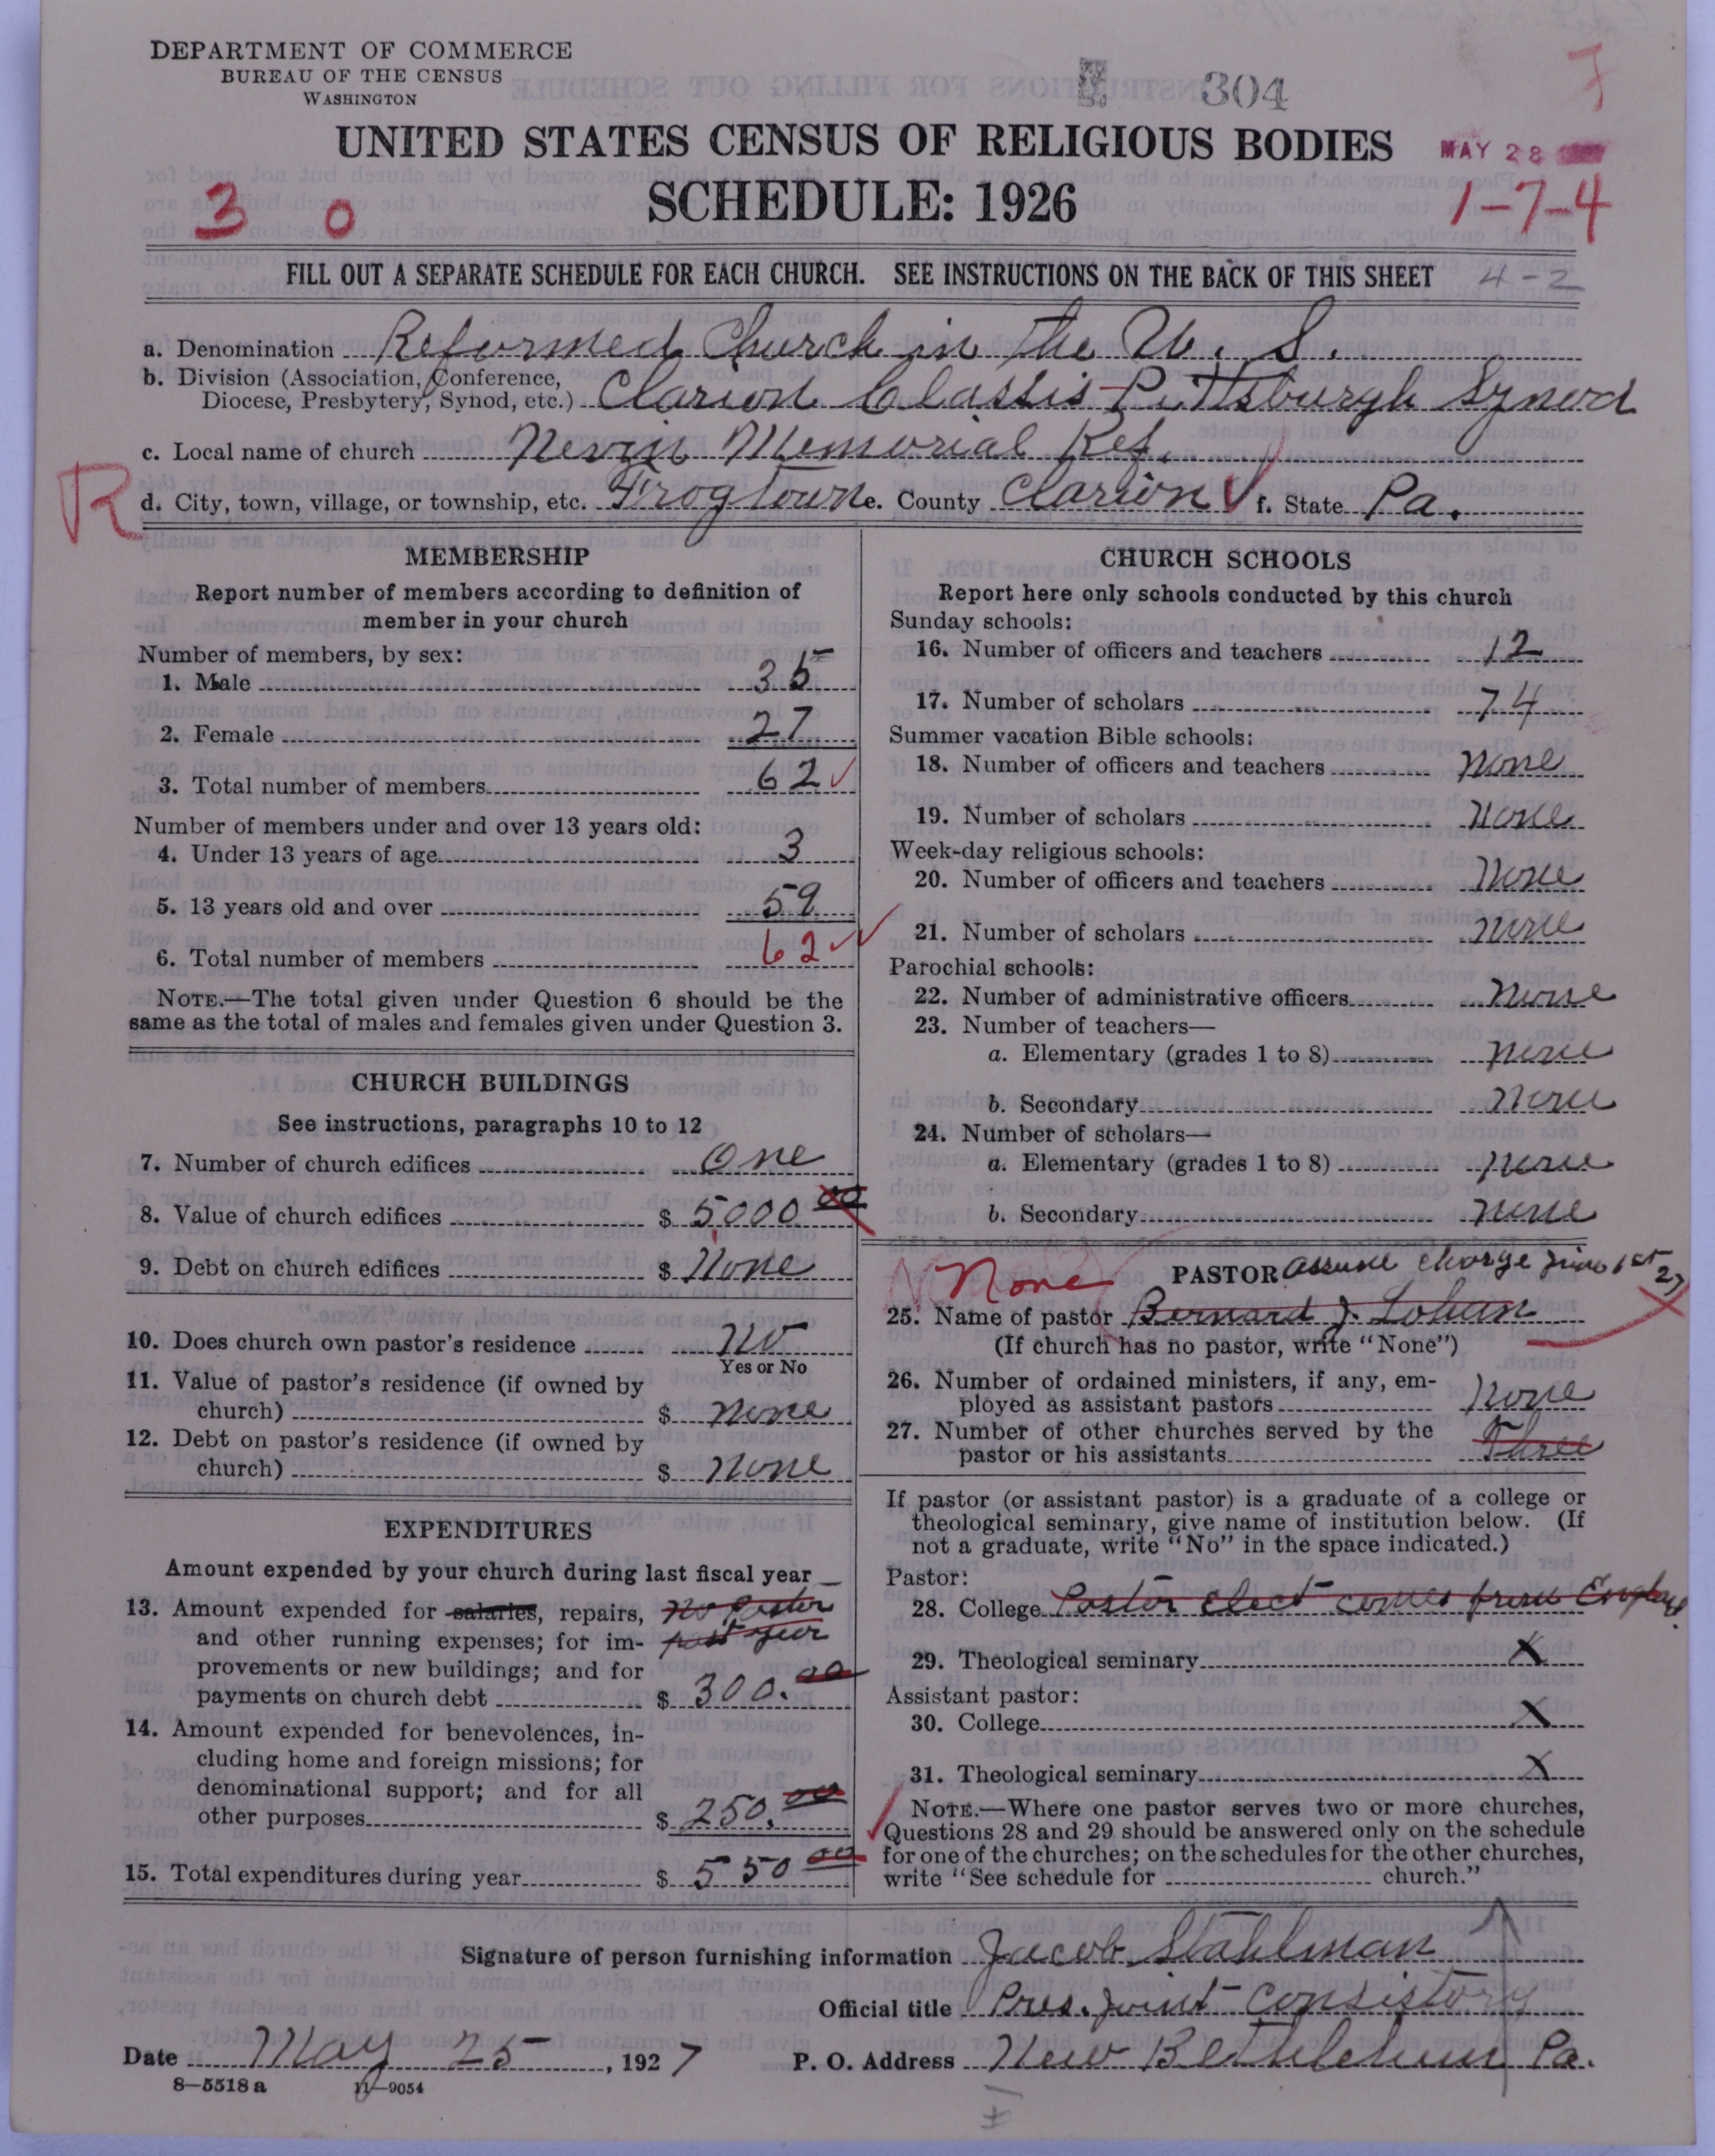 DEPARTMENT OF COMMERCE
BUREAU OF THE CENSUS
WASHINGTON
304
UNITED STATES CENSUS OF RELIGIOUS BODIES
MAY 28
SCHEDULE: 1926
3 0
1-7-4
FILL OUT A SEPARATE SCHEDULE FOR EACH CHURCH. SEE INSTRUCTIONS ON THE BACK OF THIS SHEET
4-2
a. Denomination Reformed Church in the U. S.
b. Division (Association, Conference,
Diocese, Presbytery, Synod, etc.) Clarion Classis Pittsburgh Synod
c. Local name of church Nevin Memorial Ref.
R
d. City, town, village, or township, etc. Frogtown e. County Clarion f. State Pa.
MEMBERSHIP
Report number of members according to definition of
member in your church
Number of members, by sex:
1. Male 35
2. Female 27
3. Total number of members 62
Number of members under and over 13 years old:
4. Under 13 years of age 3
5. 13 years old and over 59
6. Total number of members 62
NOTE.—The total given under Question 6 should be the
same as the total of males and females given under Question 3.
CHURCH BUILDINGS
See instructions, paragraphs 10 to 12
7. Number of church edifices One
8. Value of church edifices $ 5000 00
9. Debt on church edifices $ None
10. Does church own pastor's residence No
Yes or No
11. Value of pastor's residence (if owned by
church) $ none
12. Debt on pastor's residence (if owned by
church) $ none
EXPENDITURES
Amount expended by your church during last fiscal year
13. Amount expended for salaries, repairs, no Pastor
and other running expenses; for im- past year
provements or new buildings; and for
payments on church debt $ 300. 00
14. Amount expended for benevolences, in-
cluding home and foreign missions; for
denominational support; and for all
other purposes $ 250. 00
15. Total expenditures during year $ 550 00
CHURCH SCHOOLS
Report here only schools conducted by this church
Sunday schools:
16. Number of officers and teachers 12
17. Number of scholars 74
Summer vacation Bible schools:
18. Number of officers and teachers None
19. Number of scholars None
Week-day religious schools:
20. Number of officers and teachers None
21. Number of scholars none
Parochial schools:
22. Number of administrative officers none
23. Number of teachers—
a. Elementary (grades 1 to 8) none
b. Secondary none
24. Number of scholars—
a. Elementary (grades 1 to 8) none
b. Secondary none
None PASTOR assume charge June 1st 27
25. Name of pastor Bernard J.
(If church has no pastor, write "None")
26. Number of ordained ministers, if any, em-
ployed as assistant pastors none
27. Number of other churches served by the
pastor or his assistants Three
If pastor (or assistant pastor) is a graduate of a college or
theological seminary, give name of institution below. (If
not a graduate, write "No" in the space indicated.)
Pastor:
28. College Pastor elect comes from
29. Theological seminary X
Assistant pastor:
30. College X
31. Theological seminary X
NOTE.—Where one pastor serves two or more churches,
Questions 28 and 29 should be answered only on the schedule
for one of the churches; on the schedules for the other churches,
write "See schedule for church."
Signature of person furnishing information Jacob Stahlman
Official title Pres. Joint Consistory
Date May 25, 1927 P. O. Address New Bethlehem Pa.
8—5518 a 11—9054